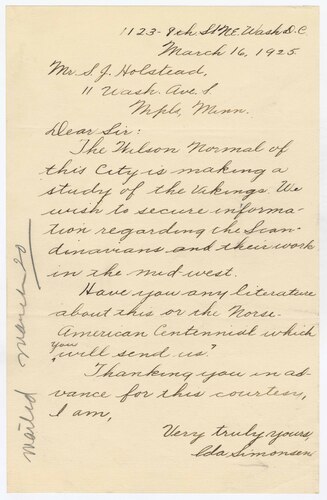 1123-9th St NE. Wash D.C
March 16, 1925
Mr. S. J. Holstead,
11 Wash. Ave. S
Mpls, Minn.
Dear Sir:
The Wilson Normal of
this City is making a
study of the Vikings. We
wish to secure informa-
tion regarding the Scan-
dinavians and their work
in the mid west.
Have you any literature
about this or the Norse-
American Centennial which
you
will send us?
Thanking you in ad-
vance for this courtesy,
I am,
Very truly yours,
Ida Simonsen
mailed March 20